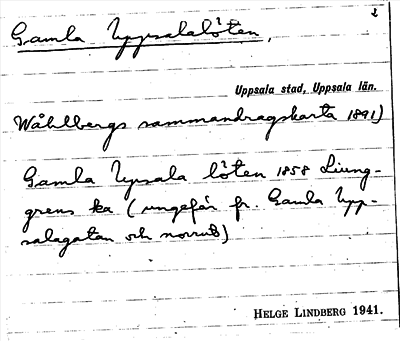 Gamla Uppsalalöten,
Uppsala stad, Uppsala län.
Wåhlbergs sammandragskarta 1891)
Gamla Upsala löten 1858 Liung-
grens ka (ungefär fr. Gamla Upp-
salagatan och norrut)
HELGE LINDBERG 1941.